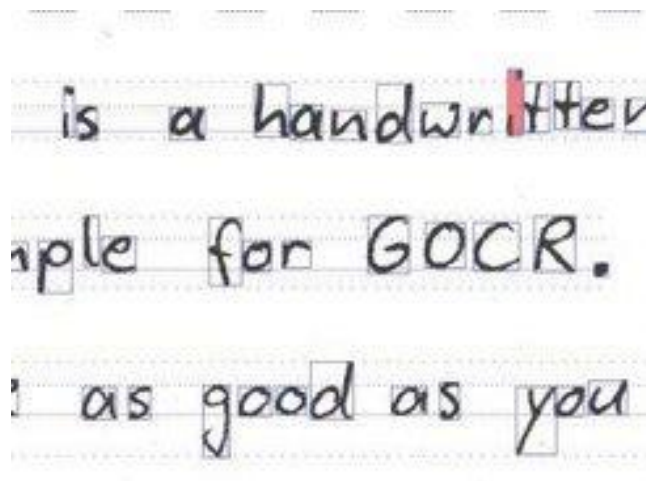 is a handwritten
mple for GOCR.
e as good as you